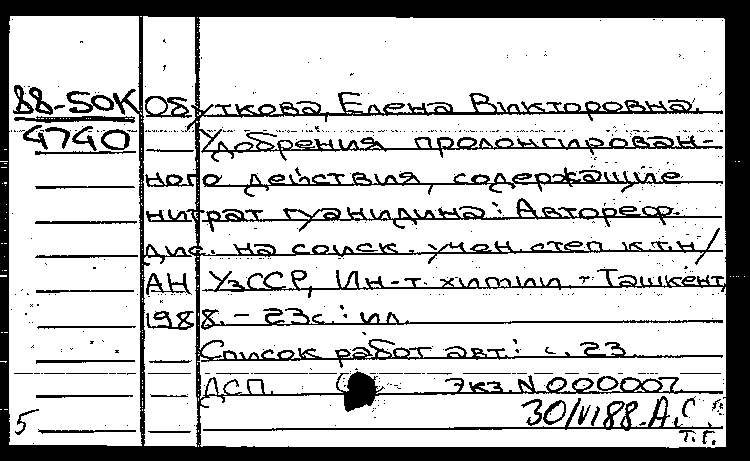 88-5ОК Обуткова, Елена Викторовна.
4740 Удобрения пролонгирован-
ного действия, содержащие
нитрат гуанидина: Автореф.
дис. на соиск. учен. степ к.т.н/
АН УзССР, Ин-т. химии - Ташкент,
1988. - 23с.: ил.
Список работ авт.: с. 23
ДСП. Экз.N 000007
5 30/VI88. А.С.
Т.Г.